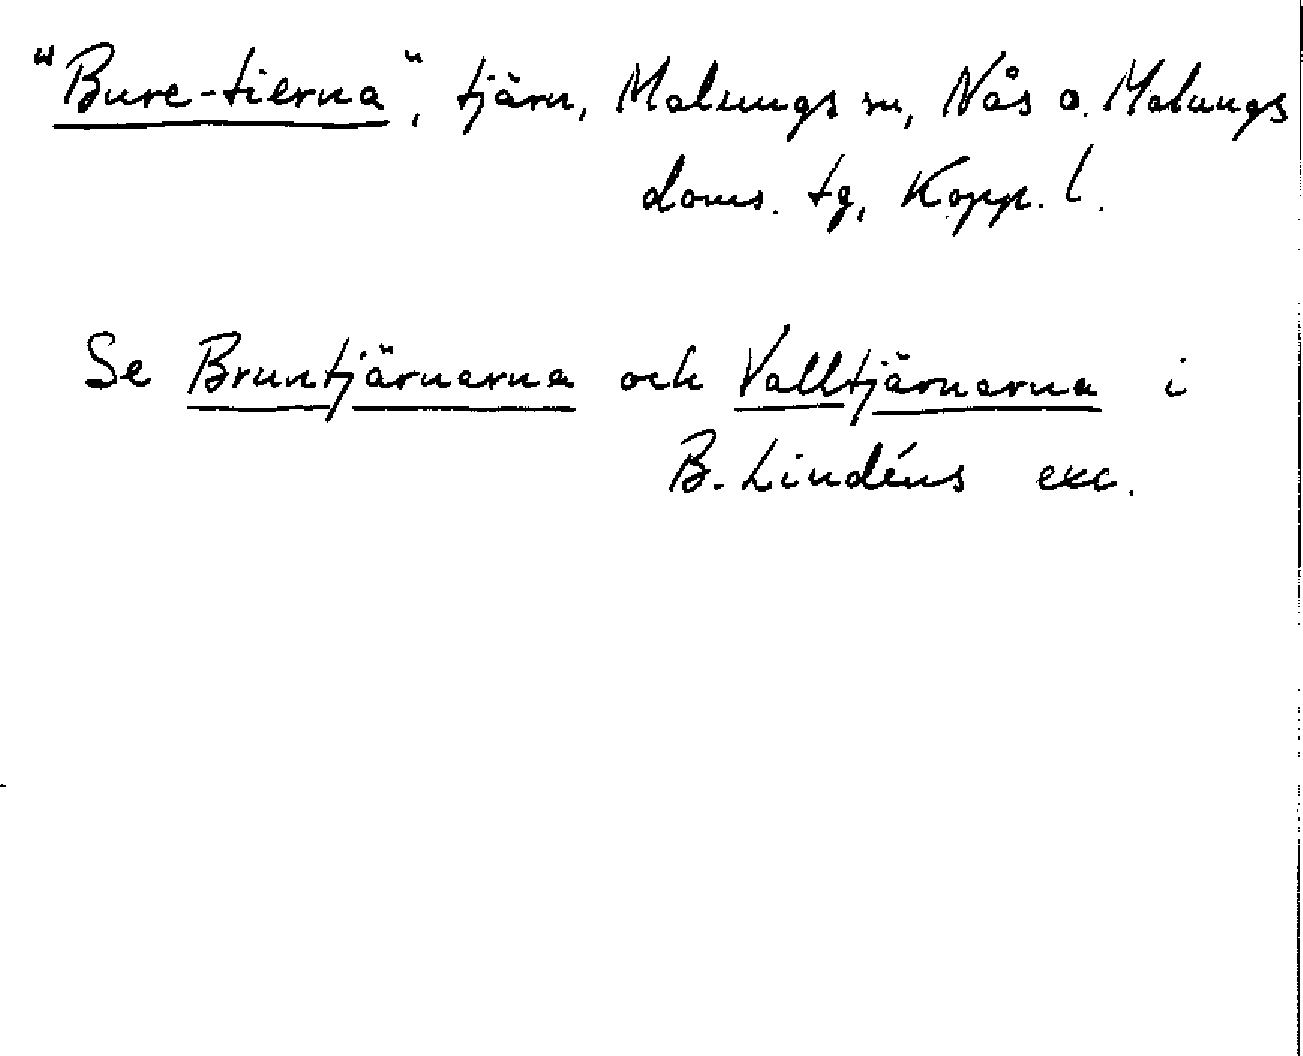 "Bure-tierna", tjärn, Malungs sn, Nås o. Malungs
doms. tg, Kopp. l.
Se Bruntjärnarna och Valltjärnarna i
B. Lindéns exc.